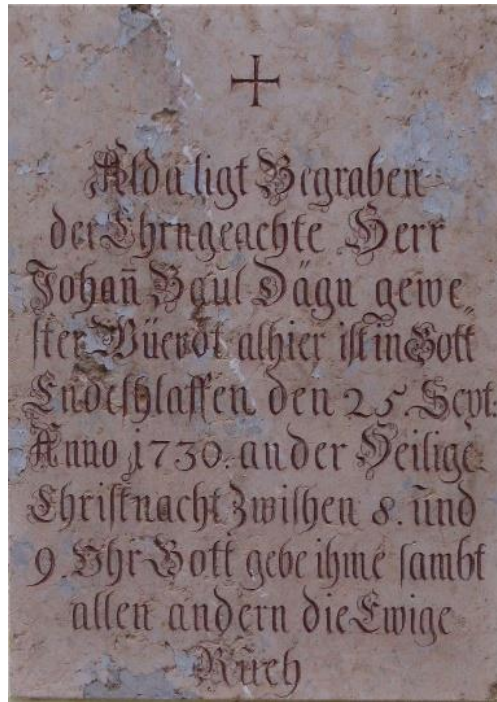 Alda ligt Begraben
der Ehrngeachte Herr
Johan̄ Paul Dägn gewe⸗
ster Wüerdt alhier ist in Gott
Endtschlaffen den 25 Sept.
Anno 1730. an der Heilige
Christnacht Zwilhen 8. und
9. Uhr Gott gebe ihme sambt
allen andern die Ewige
Rueh